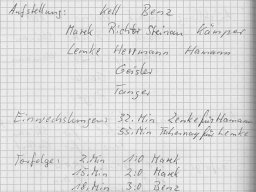 Aufstellung: Kell Benz
Marek Richter Steinau Kämper
Lemke Herrmann Hamann
Geisler
Tanger
Einwechslungen: 32. Min Zenke für Hamann
55. Min für Lemke
Torfolge: 2. Min 1:0 Marek
15. Min 2:0 Marek
18. Min 3:0 Benz